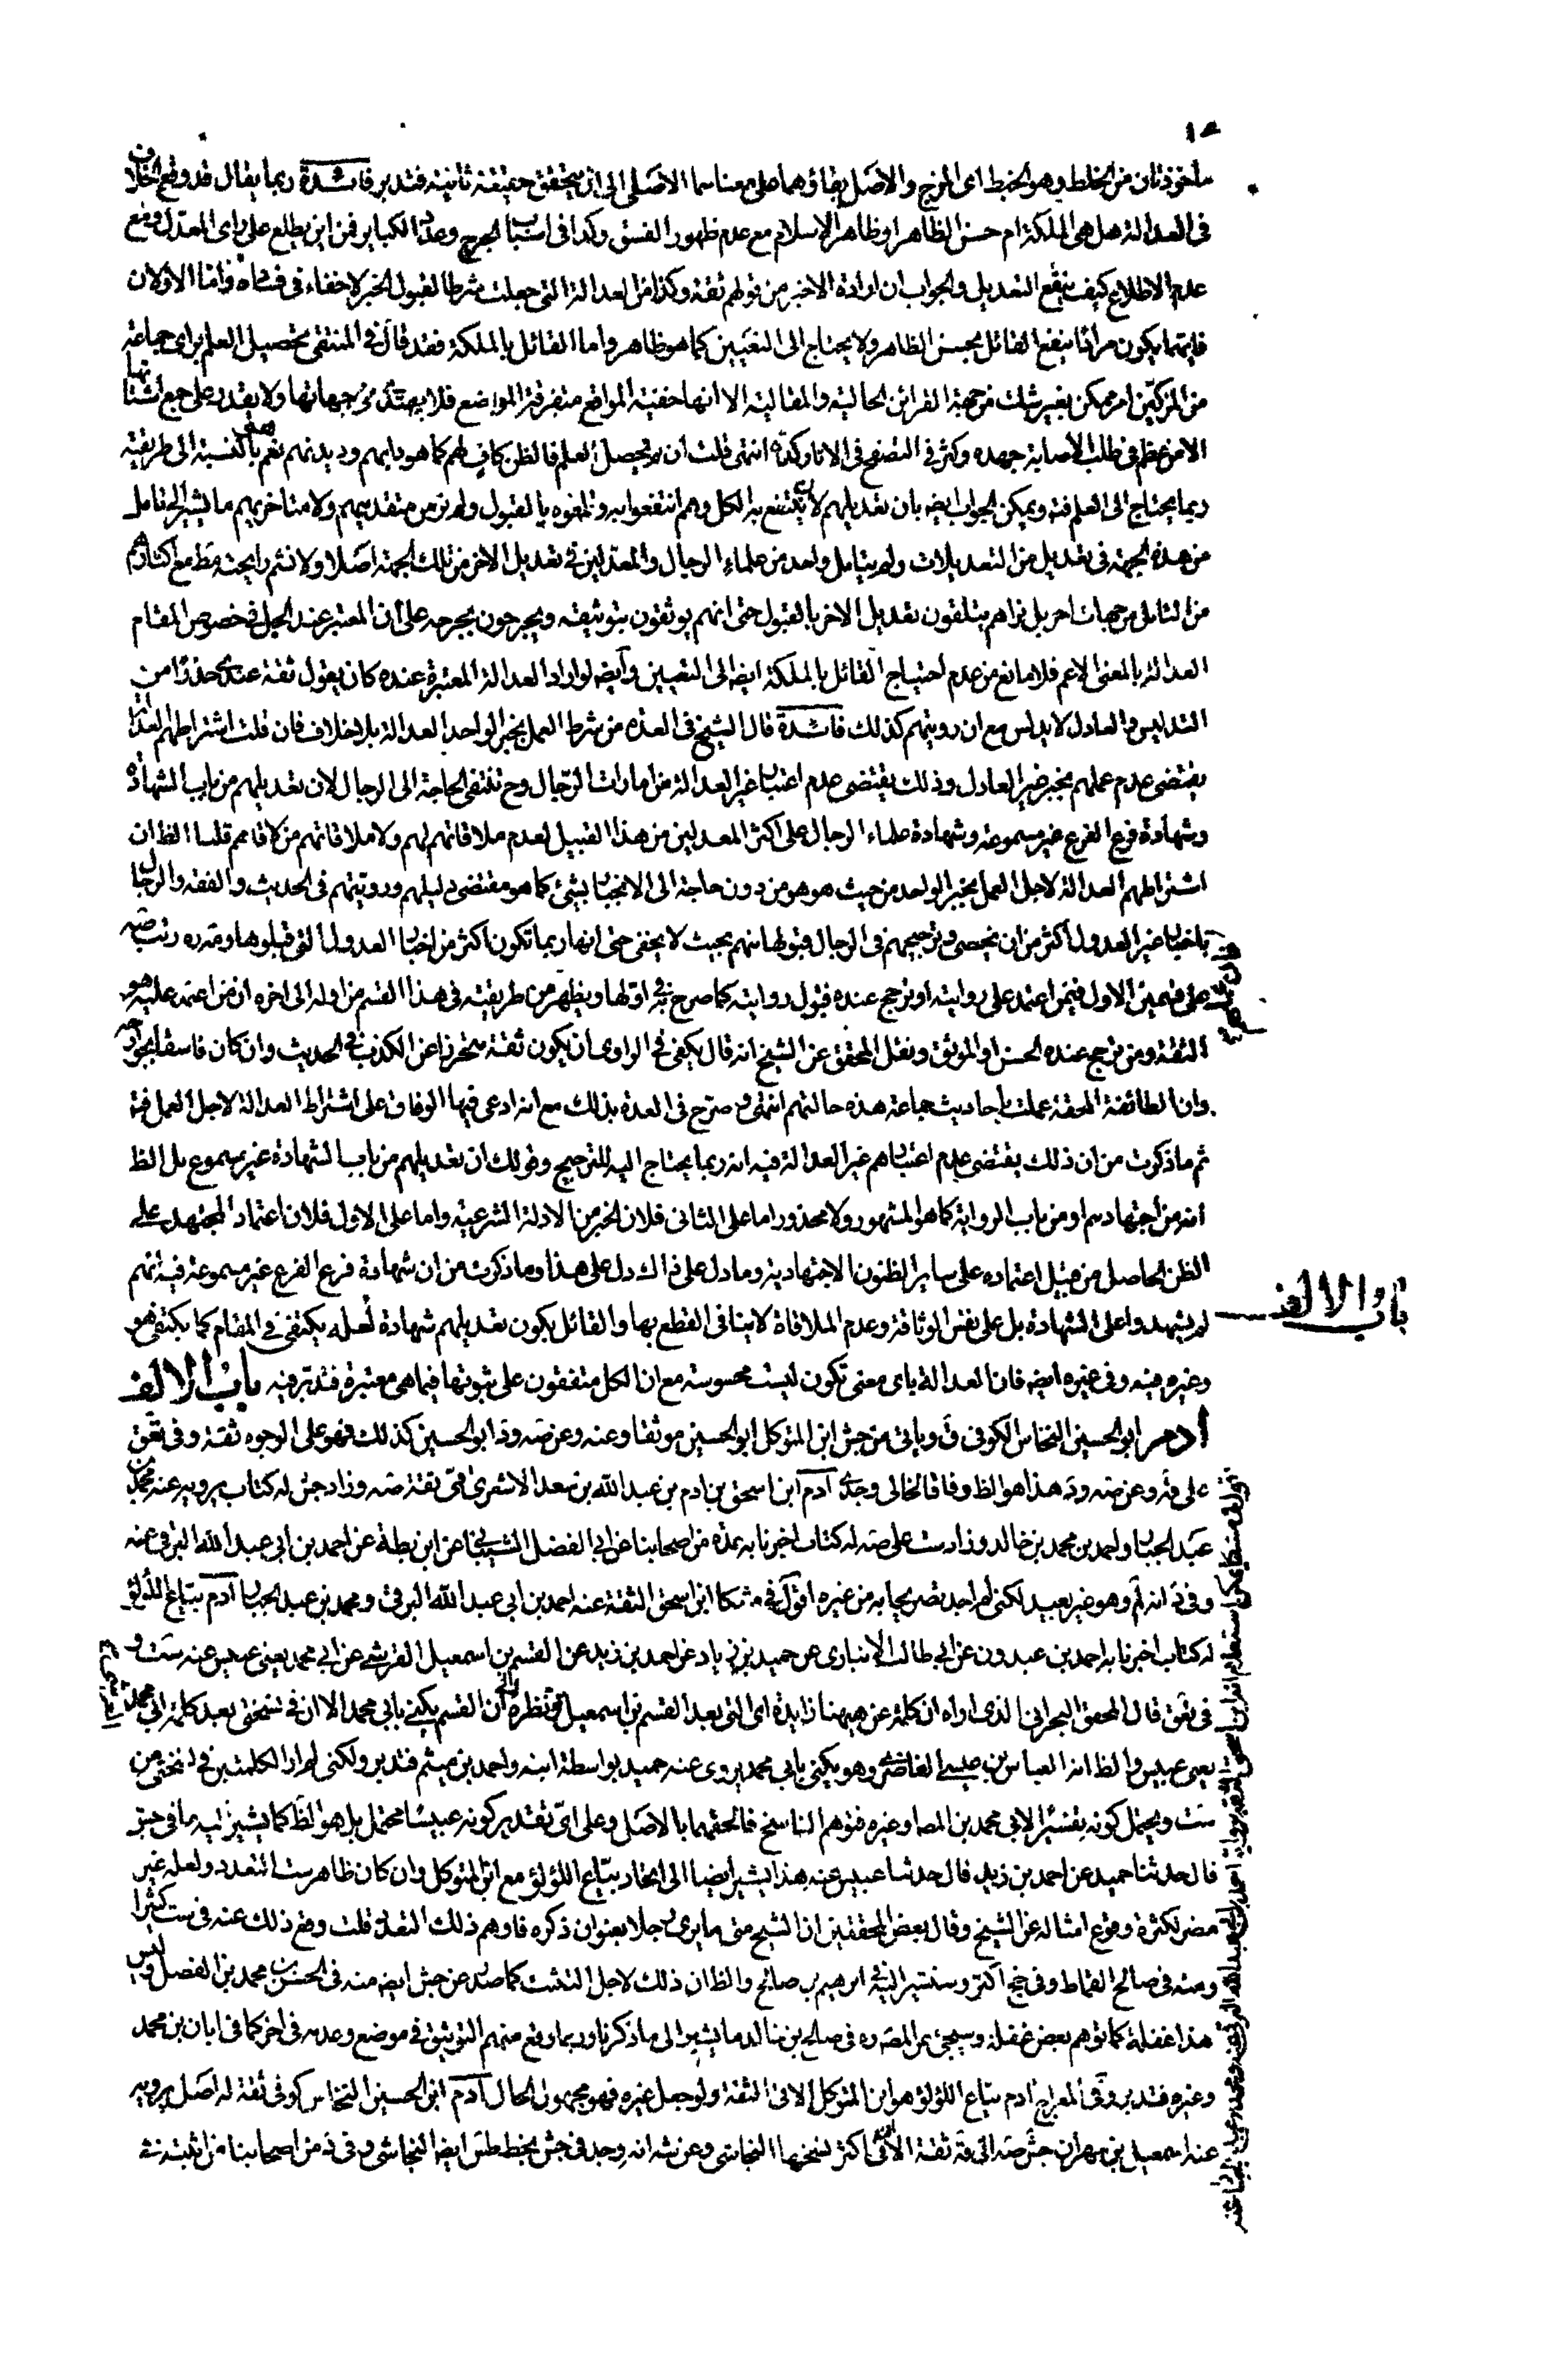 ماخوذتان من الخلط وهو الخبط اى المزج والاصل بقاؤهما على معناهما الاصلى الى ان يتحقق حقيقة ثانية فتدبر فائدة ربما يقال قد وقع الخلاف
فى العدالة هل هى الملكة ام حسن الظاهر او ظاهر الاسلام مع عدم ظهور الفسق وكذا فى اسباب الجرح وعدد الكباير فمن اين يطلع على راى المعدل ومع
عدم الاطلاع كيف ينفع التعديل والجواب ان ارادة الاخير من قولهم ثقة وكذا من العدالة التى جعلت شرطا لقبول الخبر لا خفاء فى فساده واما الاولان
فايهما يكون مرادا ينفع القائل بحسن الظاهر ولا يحتاج الى التعيين كما هو ظاهر واما القائل بالملكة فقد قال فى المنتقى تحصيل العلم براى جماعة
من المزكين امر ممكن بغير شك من جهة القرائن الحالية والمقالية الا انها خفية المواقع متفرقة المواضع فلا يهتدى الى جهاتها ولا يقدر على جمع اشتاتها
الا من عظم فى طلب الاصابة جهده وكثر فى التصفح فى الاثار وكده انتهى قلت ان لم يحصل العلم فالظن كاف لهم كما هو دابهم وديدنهم نعم بالنسبة الى طريقته
ربما يحتاج الى العلم فته ويمكن الجواب ايضه بان تعديلهم لان ينتفع به الكل وهم انتفعوا به وتلقوه بالقبول ولم نر من متقدميهم ولا متاخريهم ما يشير الى تامل
من هذه الجهة فى تعديل من التعديلات ولم يتامل واحد من علماء الرجال والمعدلين فى تعديل الاخر من تلك الجهة اصلا ولا نشم رايحته قط مع اكثارهم
من التامل من جهات اخر بل نراهم يتلقون تعديل الاخر بالقبول حتى انهم يوثقون بتوثيقه ويجرحون بجرحه على ان المعتبر عند الجل فى خصوص المقام
العدالة بالمعنى الاعم فلا مانع من عدم احتياج القائل بالملكة ايضه الى التعيين وايضه لو اراد العدالة المعتبرة عنده كان يقول ثقة عندى حذرا من
التدليس والعادل لا يدلس مع ان رويتهم كذلك فائدة قال الشيخ فى العدة من شرط العمل بخبر الواحد العدالة بلا خلاف فان قلت اشتراطهم العدالة
يقتضى عدم عملهم بخبر غير العادل وذلك يقتضى عدم اعتبار غير العدالة من امارات الرجال وح تنتفى الحاجة الى الرجال لان تعديلهم من باب الشهادة
وشهادة فرع الفرع غير مسموعة وشهادة علماء الرجال على اكثر المعدلين من هذا القبيل لعدم ملاقاتهم لهم ولا ملاقاتهم من لاقاهم قلنا الظ ان
اشتراطهم العدالة لاجل العمل بخبر الواحد من حيث هو هو من دون حاجة الى الانجبار بشئ كما هو مقتضى دليلهم ورويتهم فى الحديث والفقه والرجال
باخبار غير العدول اكثر من ان يحصى وترجيحهم فى الرجال قبولها منهم بحيث لا يخفى حتى انها ربما تكون اكثر من اخبار العدول التى قبلوها ومه ره رتب صه
على قسمين الاول فيمن اعتمد على روايته او ترجح عنده قبول روايته كما صرح فى اولها ويظهر من طريقته فى هذا القسم من اوله الى اخره ان من اعتمد عليه هو
الثقة ومن ترجح عنده الحسن او الموثق ونقل المحقق عن الشيخ انه قال يكفى فى الراوى ان يكون ثقة متحرزا عن الكذب فى الحديث وان كان فاسقا بجوارحه
وان الطائفة المحقة عملت باحاديث جماعة هذه حالتهم انتهى وصرح فى العدة بذلك مع انه ادعى فيها الوفاق على اشتراط العدالة لاجل العمل فته
ثم ما ذكرت من ان ذلك يقتضى عدم اعتبارهم غير العدالة فيه انه ربما يحتاج اليه للترجيح وقولك ان تعديلهم من باب الشهادة غير مسموع بل الظ
انه من اجتهادهم او من باب الرواية كما هو المشهور ولا محذور اما على الثانى فلان الخبر من الادلة الشرعية واما على الاول فلان اعتماد المجتهد على
الظن الحاصل من قبيل اعتماده على ساير الظنون الاجتهادية وما دل على ذاك دل على هذا وما ذكرت من ان شهادة فرع الفرع غير مسموعة فيه انهم
لم يشهدوا على الشهادة بل على نفس الوثاقة وعدم الملاقاة لا ينافى القطع بها والقائل بكون تعديلهم شهادة لعله يكتفى فى المقام كما يكتفى هو
وغيره فيه وفى غيره ايضه فان العدالة باى معنى تكون ليست محسوسة مع ان الكل متفقون على ثبوتها فيما هى معتبرة فتدبر فيه باب الالف
باب الالف
آدم ابو الحسين النخاس الكوفى ق وياتى عن جش ابن المتوكل ابو الحسين موثقا وعنه وعن صه ود ابو الحسين كذلك فهو على الوجوه ثقة وفى تعق
على قه وعن صه ود هذا هو الظ وفاقا لخالى وجدى آدم ابن اسحق بن ادم بن عبد الله بن سعد الاشعرى قمى ثقة صه وزاد جش له كتاب يرويه عنه محمد بن
عبد الجبار واحمد بن محمد بن خالد وزاد ست على صه له كتاب اخبرنا به عدة من اصحابنا عن ابى الفضل الشيبانى عن ابن بطة عن احمد بن ابى عبد الله البرقى عنه
وفى د انه لم وهو غير بعيد لكنى لم اجد تصريحا به من غيره اقول فى مشكا ابن اسحق الثقة عنه احمد بن ابى عبد الله البرقى ومحمد بن عبد الجبار آدم بياع اللؤلؤ
له كتاب اخبرنا به احمد بن عبدون عن ابى طالب الانبارى عن حميد بن زياد عن احمد بن زيد عن القسم بن اسمعيل القرشى عن ابى محمد يعنى عبيس عنه ست و
فى تعق قال المحقق البحرانى الذى اراه ان كلمة عن ههنا زايدة اى التى بعد القسم بن اسمعيل فى نظره ان القسم يكنى بابى محمد الا ان فى نسختى بعد كلمة ابى محمد
يعنى عبيس والظ انه العباس بن عيسى الغاضرى وهو يكنى بابى محمد يروى عنه حميد بواسطة ابنه واحمد بن ميثم فتدبر ولكنى لم ار الكلمتين فى نسختى من
ست ويحتمل كونه تفسيرا لابى محمد من المصه او غيره فتوهم الناسخ فالحقهما بالاصل وعلى اى تقدير كونه عبيسا محتمل بل هو الظ كما يشير اليه ما فى جش
قال حدثنا حميد عن احمد بن زيد قال حدثنا عبيس عنه هذا يشير ايضا الى اتحاد بياع اللؤلؤ مع ابن المتوكل وان كان ظاهر ست التعدد ولعله غير
مضر لكثرة وقوع امثاله عن الشيخ وقال بعض المحققين ان الشيخ متى ما يرى رجلا بعنوان ذكره فاوهم ذلك التعدد قلت وقع ذلك عنه فى ست كثيرا
ومنه فى صالح القماط وفى جخ اكثر وسنشير اليه فى ابرهيم بن صالح والظ ان ذلك لاجل التثبت كما صدر عن جش ايضه منه فى الحسن بن محمد بن الفضل وليس
هذا غفلة كما توهم بعض غفلة وسيجئ عن المصه ره فى صالح بن خالد ما يشير الى ما ذكرنا وربما وقع منهم التوثيق فى موضع وعدمه فى اخر كما فى ابان بن محمد
وغيره فتدبر وفى المعراج آدم بياع اللؤلؤ هو ابن المتوكل الاتى الثقة ولو جعل غيره فهو مجهول الحال آدم ابن الحسين النخاس كوفى ثقة له اصل يرويه
عنه اسمعيل بن مهران جش صه الى قه ثقة الا فى اكثر نسخها النجاشى وعن شه انه وجد فى جش بخط طس ايضه النجاشى وفى د من اصحابنا من اثبته